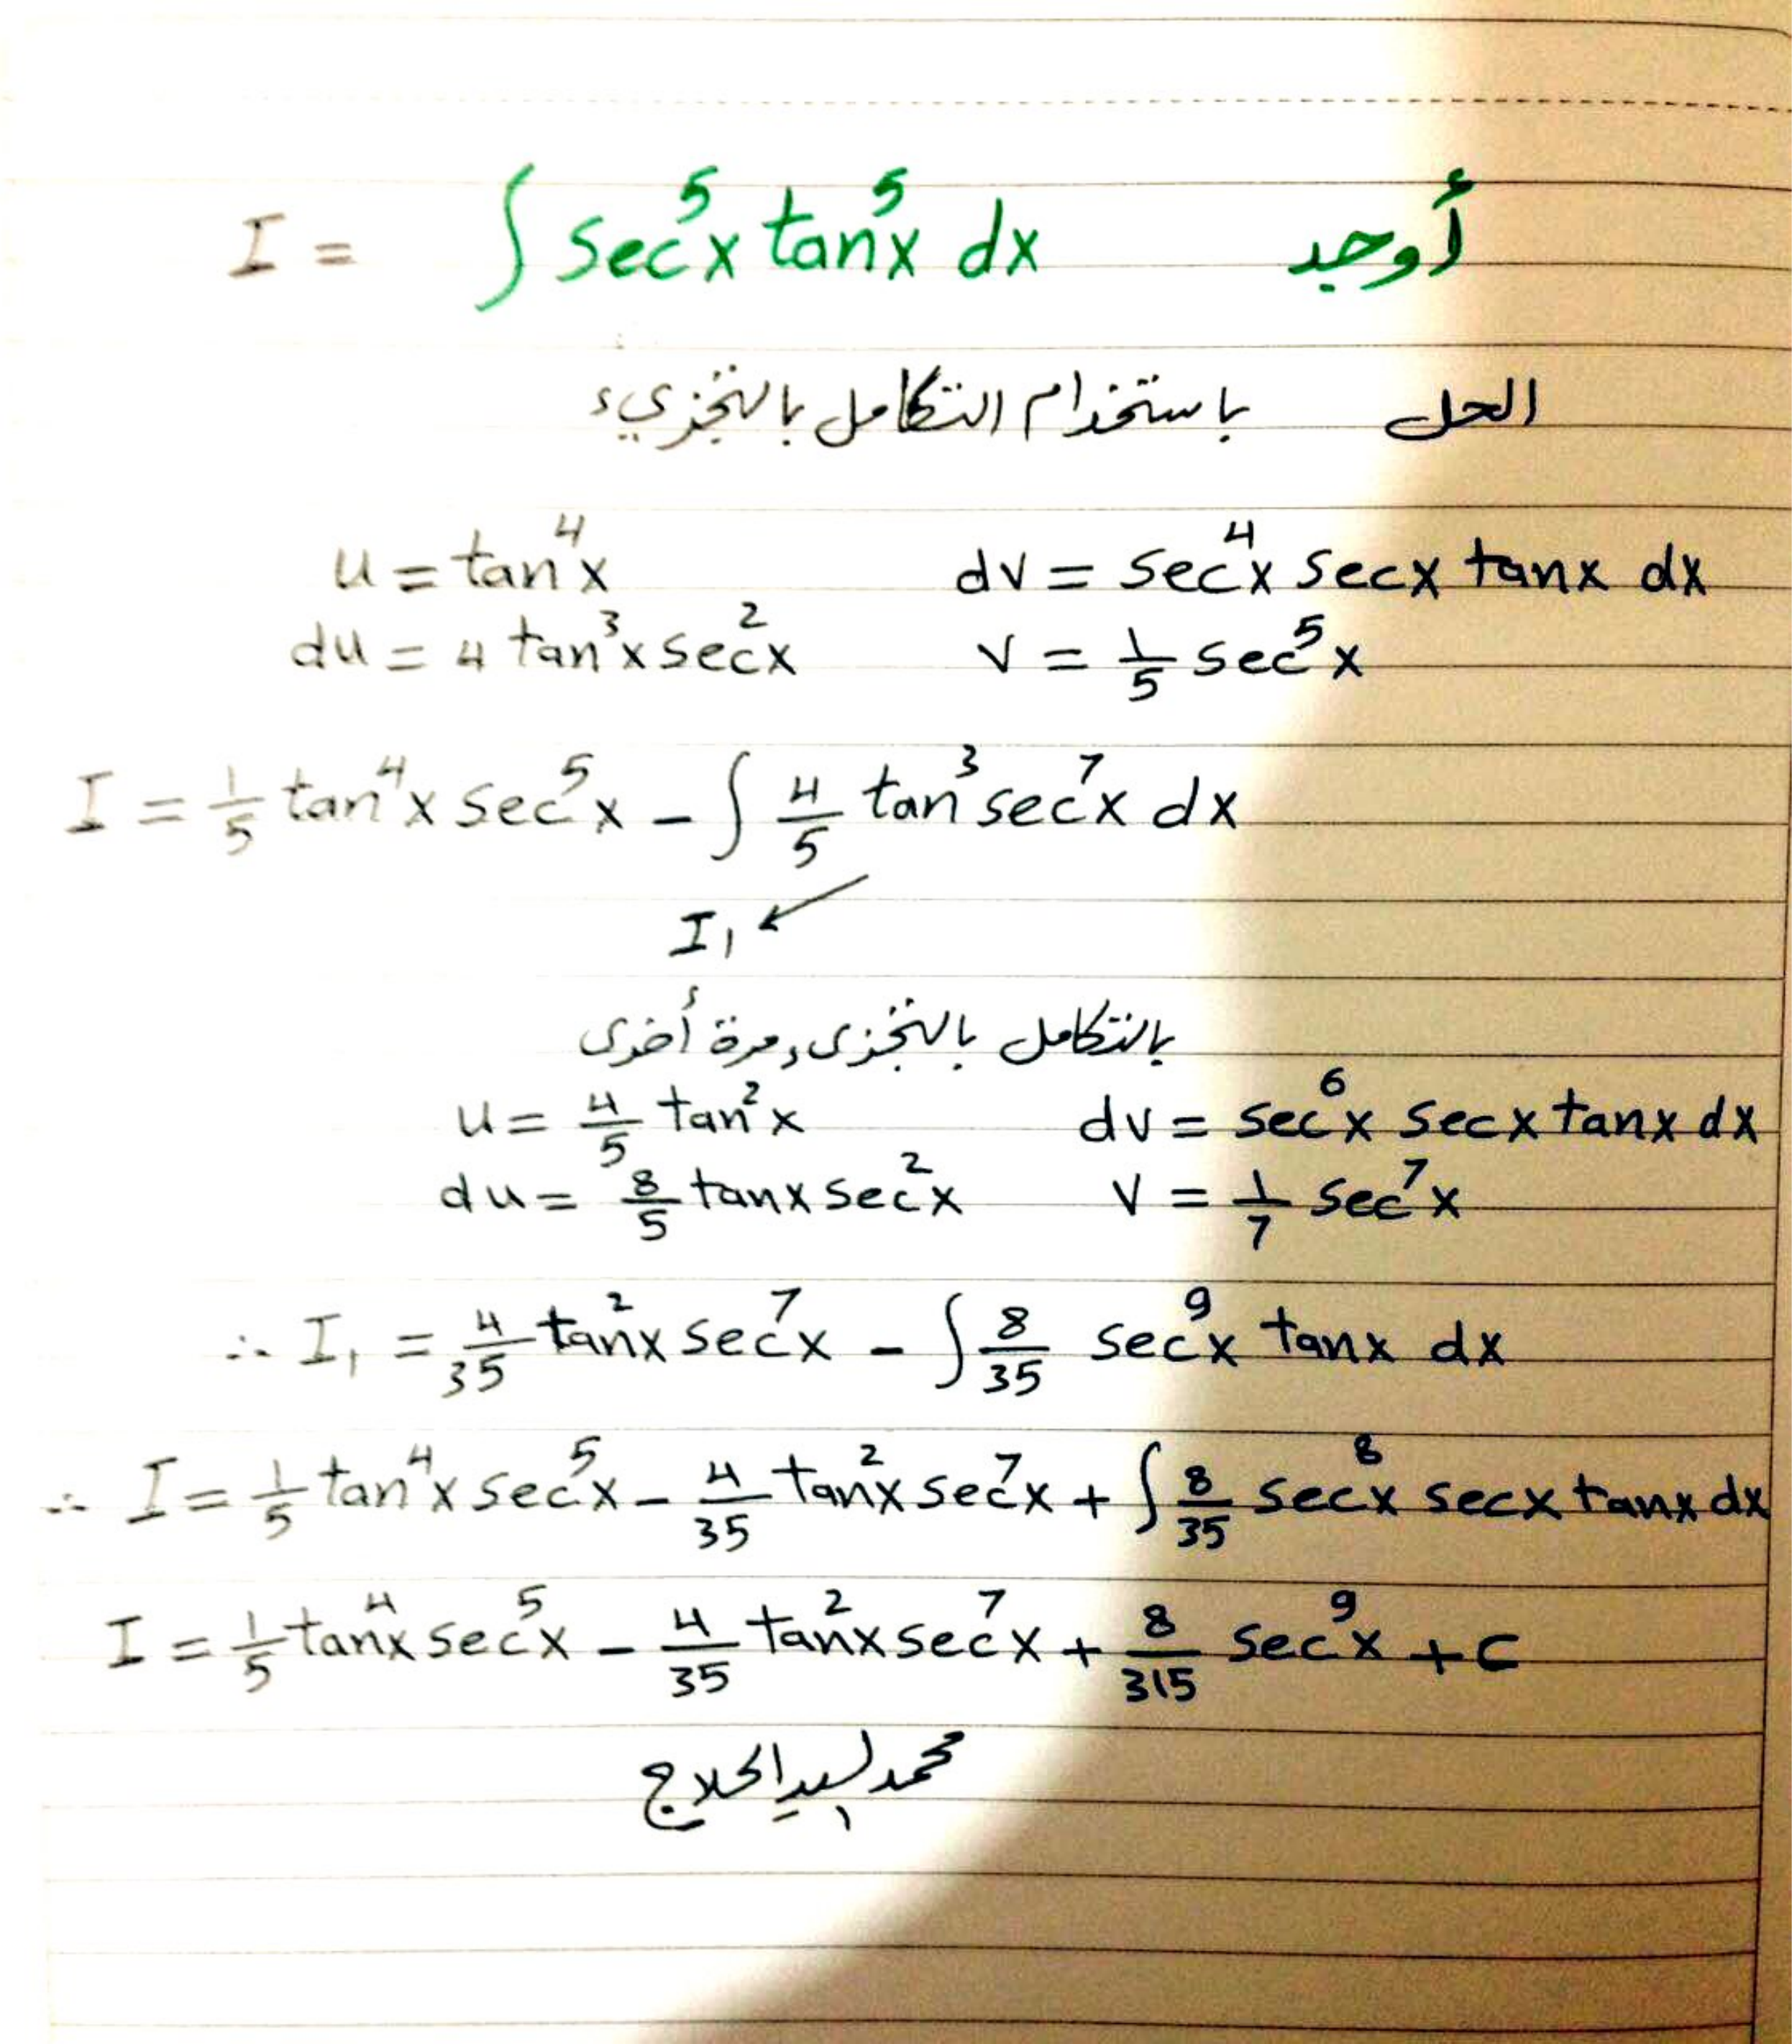 أوجد I = ∫ sec⁵x tan⁵x dx
الحل باستخدام التكامل بالتجزيء
u = tan⁴x dv = sec⁴x secx tanx dx
du = 4 tan³x sec²x v = 1/5 sec⁵x
I = 1/5 tan⁴x sec⁵x - ∫ 4/5 tan³ sec⁷x dx
I₁
بالتكامل بالتجزىء مرة أخرى
u = 4/5 tan²x dv = sec⁶x secx tanx dx
du = 8/5 tanx sec²x v = 1/7 sec⁷x
∴ I₁ = 4/35 tan²x sec⁷x - ∫ 8/35 sec⁹x tanx dx
∴ I = 1/5 tan⁴x sec⁵x - 4/35 tan²x sec⁷x + ∫ 8/35 sec⁸x secx tanx dx
I = 1/5 tan⁴x sec⁵x - 4/35 tan²x sec⁷x + 8/315 sec⁹x + c
محمد السيد الحلاج